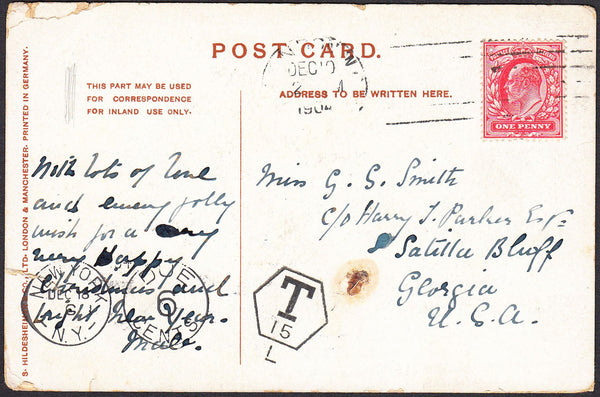 POST CARD.
THIS PART MAY BE USED
FOR CORRESPONDENCE
FOR INLAND USE ONLY.
ADDRESS TO BE WRITTEN HERE.
DEC 10
190
ONE PENNY
With lots of love
and every jolly
wish for a
very happy
Christmas and
bright New Year.
Miss G. G. Smith
c/o Harry J. Parker Esq.
Satilla Bluff
Georgia
U.S.A.
NEW YORK
DEC 18
N.Y.
DUE
6
CENTS
T
15
L
S. HILDESHEIMER & CO., LTD. LONDON & MANCHESTER. PRINTED IN GERMANY.